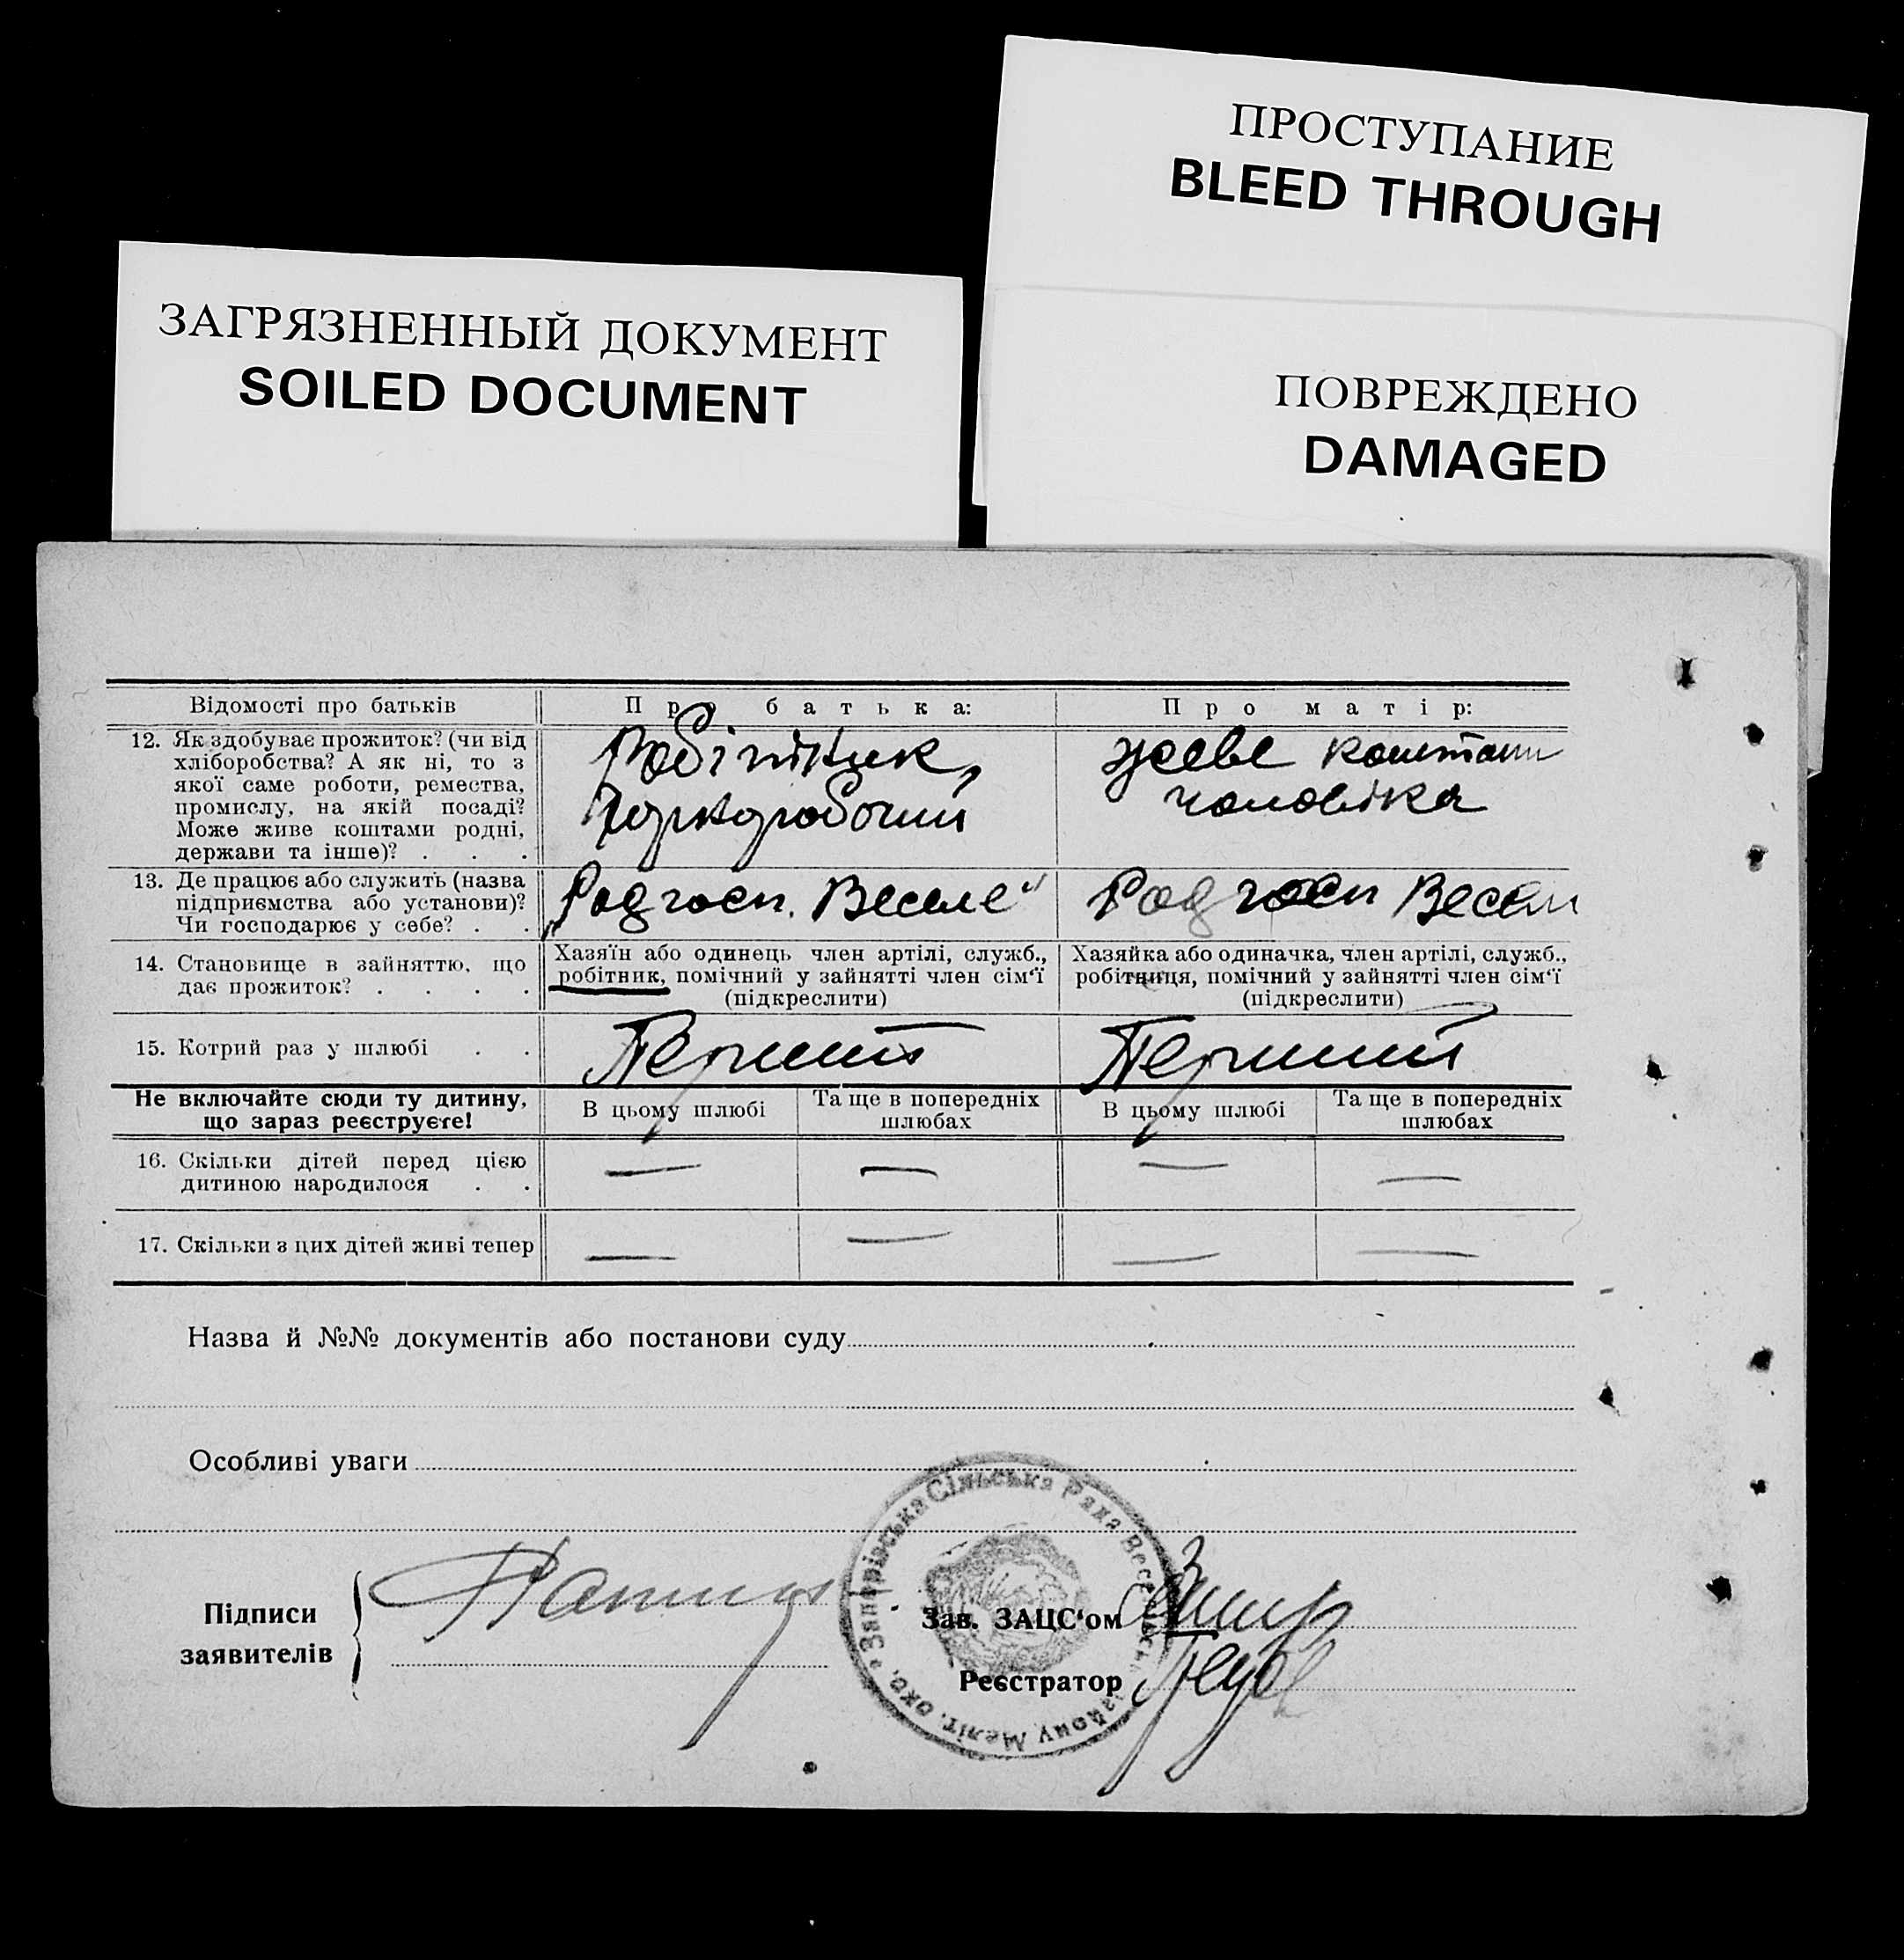 ПРОСТУПАНИЕ
BLEED THROUGH
ЗАГРЯЗНЕННЫЙ ДОКУМЕНТ
SOILED DOCUMENT
ПОВРЕЖДЕНО
DAMAGED
Відомості про батьків
Про батька:
Про матір:
12. Як здобуває прожиток? (чи від
хліборобства? А як ні, то з
якої саме роботи, ремества,
промислу, на якій посаді?
Може живе коштами родні,
держави та інше)? . . .
Робітник,
живе коштами
чоловіка
13. Де працює або служить (назва
підприємства або установи)?
Чи господарює у себе? . .
„Радгосп. Веселе"
Радгосп Весели
14. Становище в зайняттю, що
дає прожиток? . . . .
Хазяїн або одинець член артілі, служб.,
робітник, помічний у зайнятті член сім'ї
(підкреслити)
Хазяйка або одиначка, член артілі, служб.,
робітниця, помічний у зайнятті член сім'ї
(підкреслити)
15. Котрий раз у шлюбі . .
Перший
Перший
Не включайте сюди ту дитину,
що зараз реєструєте!
В цьому шлюбі
Та ще в попередніх
шлюбах
В цьому шлюбі
Та ще в попередніх
шлюбах
16. Скільки дітей перед цією
дитиною народилося . .
— — — —
17. Скільки з цих дітей живі тепер
— — — —
Назва й №№ документів або постанови суду
Особливі уваги
Сільська Рада
Меліт. окр.
Підписи
заявителів
Зав. ЗАЦС'ом
Реєстратор